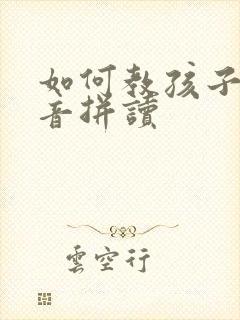 如何教孩子
音拼讀
雲空行